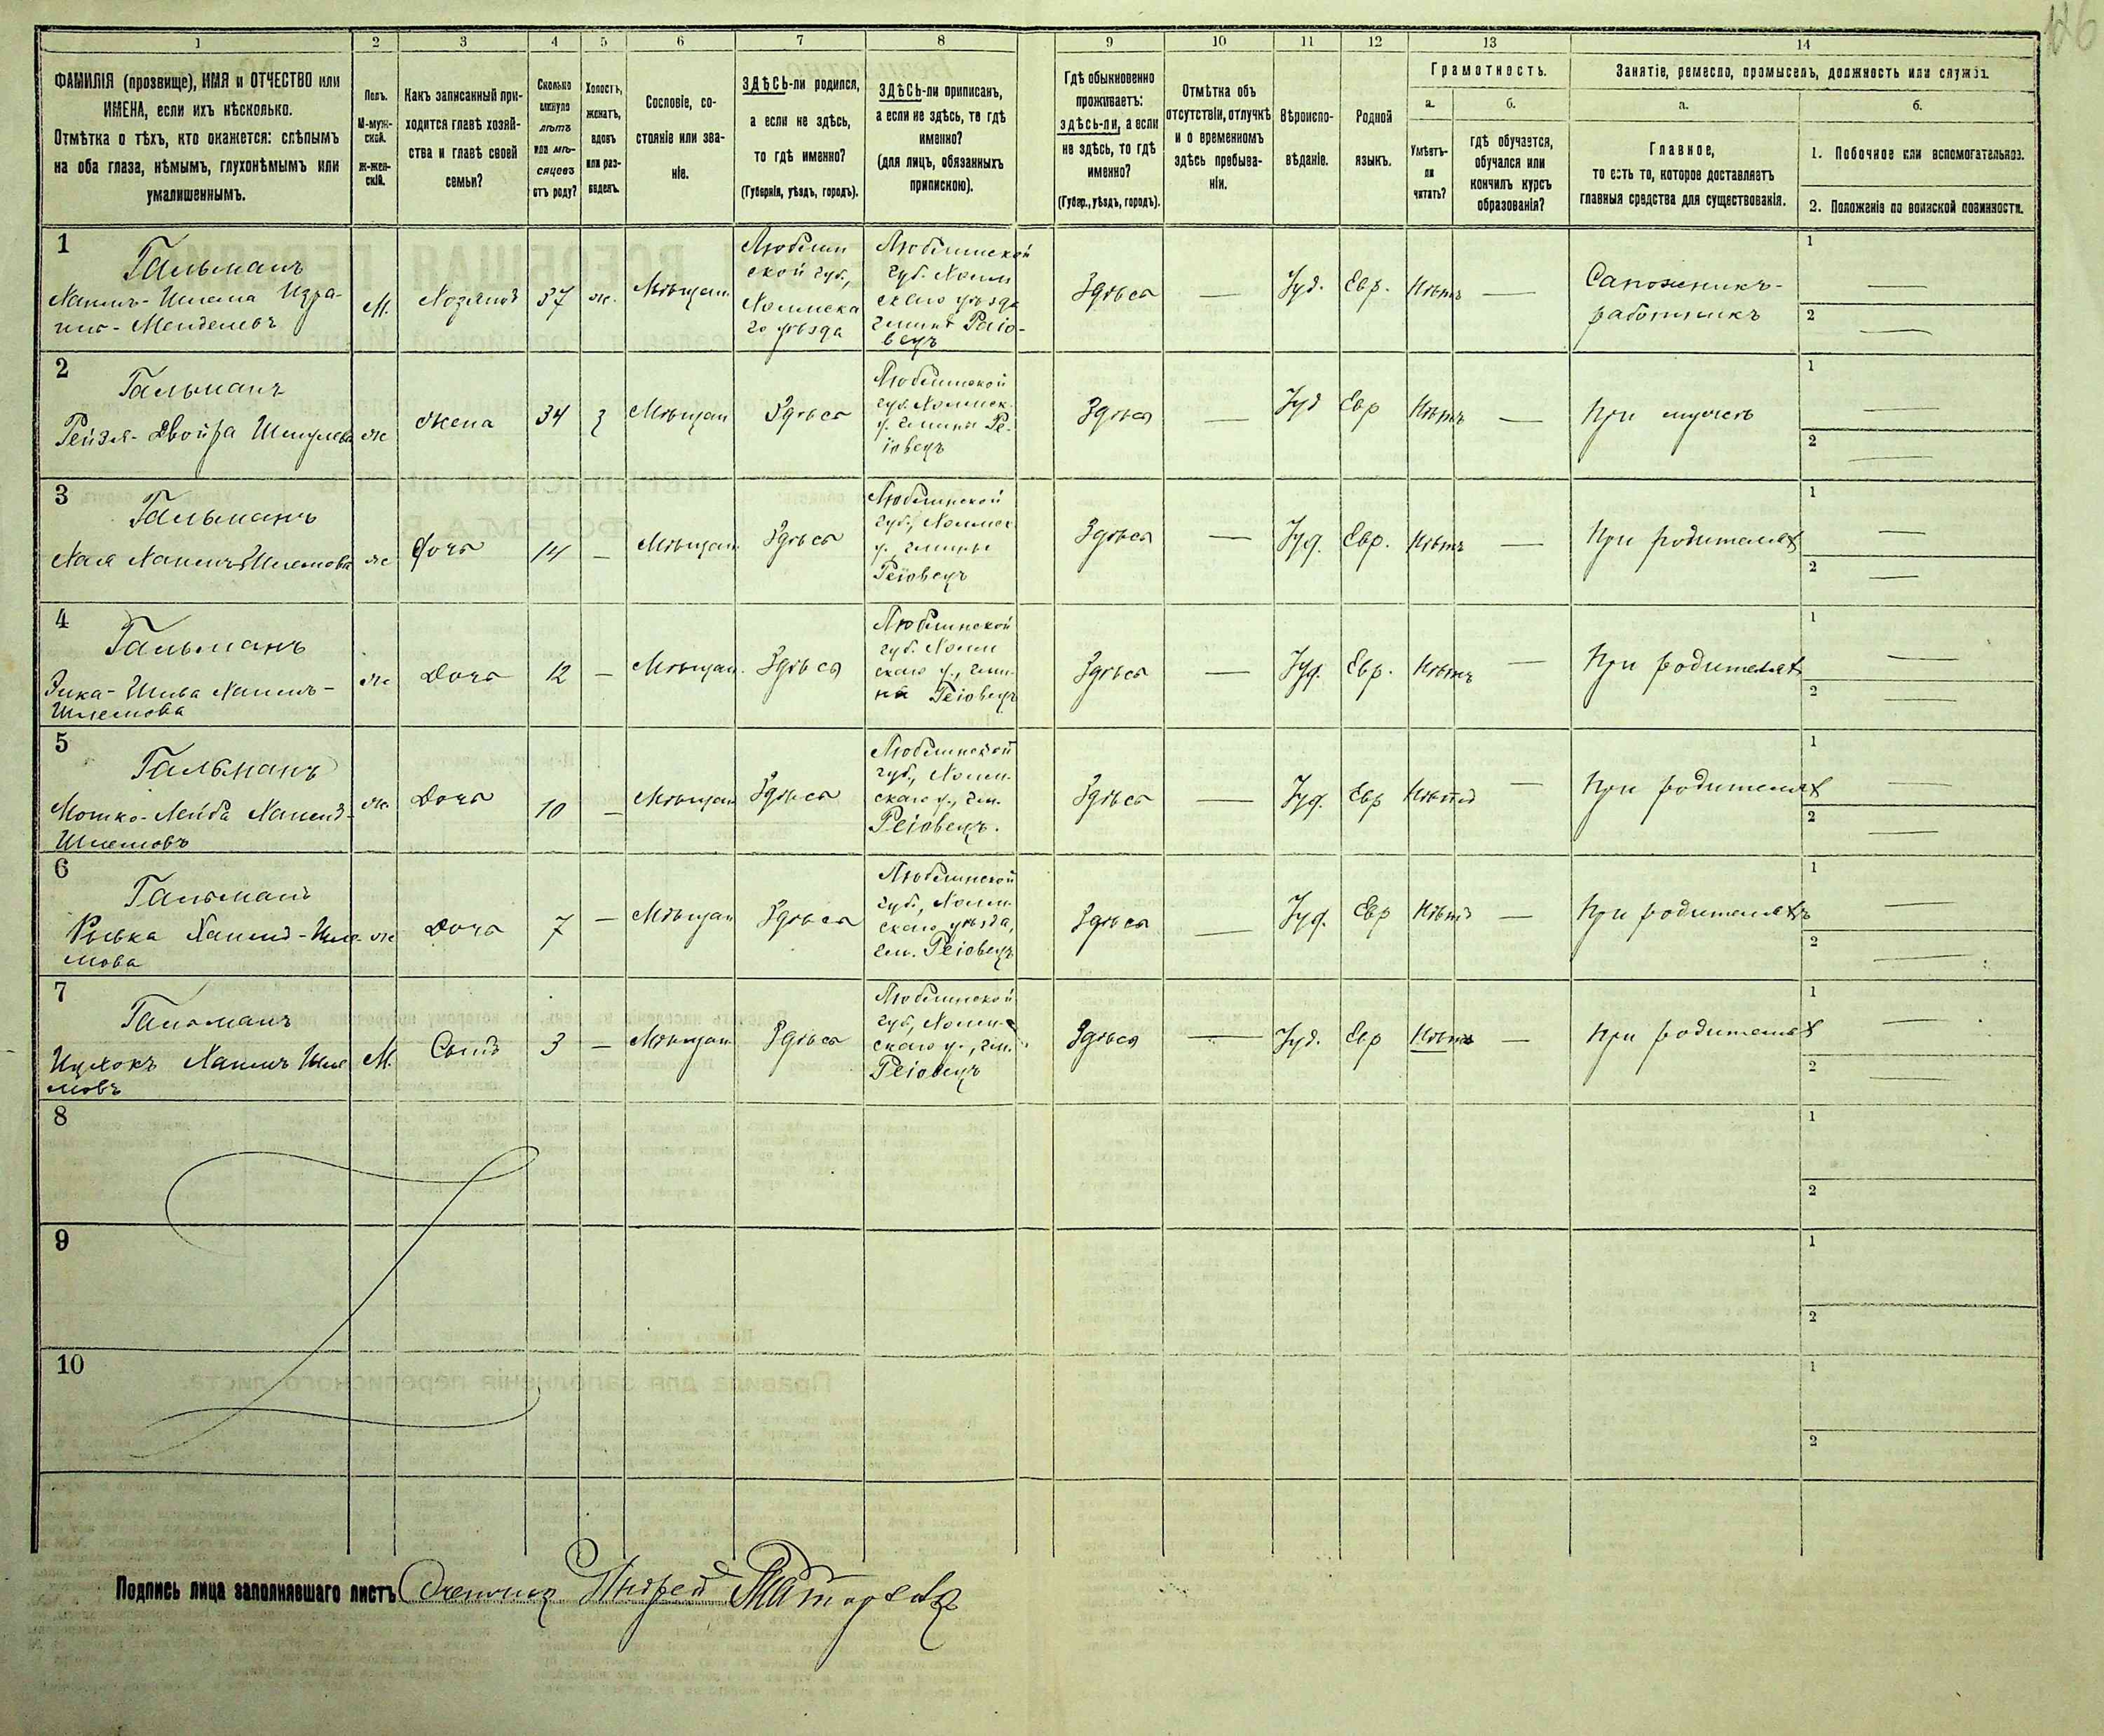 126
1 2 3 4 5 6 7 8 9 10 11 12 13 14
ФАМИЛІЯ (прозвище), ИМЯ и ОТЧЕСТВО или
ИМЕНА, если ихъ нѣсколько.
Отмѣтка о тѣхъ, кто окажется: слѣпымъ
на оба глаза, нѣмымъ, глухонѣмымъ или
умалишеннымъ.
Полъ.
М-муж-
ской.
Ж-жен-
скій.
Какъ записанный при-
ходится главѣ хозяй-
ства и главѣ своей
семьи?
Сколько
минуло
лѣтъ
или мѣ-
сяцевъ
отъ роду?
Холостъ,
женатъ,
вдовъ
или раз-
веденъ.
Сословіе, со-
стояніе или зва-
ніе.
ЗДѢСЬ-ли родился,
а если не здѣсь,
то гдѣ именно?
(Губернія, уѣздъ, городъ).
ЗДѢСЬ-ли приписанъ,
а если не здѣсь, то гдѣ
именно?
(для лицъ, обязанныхъ
припискою).
Гдѣ обыкновенно
проживаетъ:
здѣсь-ли, а если
не здѣсь, то гдѣ
именно?
(Губер., уѣздъ, городъ).
Отмѣтка объ
отсутствіи, отлучкѣ
и о временномъ
здѣсь пребыва-
ніи.
Вѣроиспо-
вѣданіе.
Родной
языкъ.
Грамотность.
а.
Умѣетъ-
ли
читать?
б.
гдѣ обучается,
обучался или
кончилъ курсъ
образованія?
Занятіе, ремесло, промыселъ, должность или служба.
а.
Главное,
то есть то, которое доставляетъ
главныя средства для существованія.
б.
1. Побочное или вспомогательное.
2. Положеніе по воинской повинности.
1
Гальманъ
Хаимъ-Шлема Изра-
илъ-Менделевъ
М.
Хозяинъ
37
ж.
Мѣщан.
Люблин
ской губ.,
Холмска
го уѣзда
Люблинской
губ. Холм
скаго уѣзда
гмины Реіо-
вецъ
Здѣсь
—
Іуд.
Евр.
Нѣтъ
—
Сапожникъ-
работникъ
1 —
2 —
2
Гальманъ
Рейзля-Двойра Шмулева
ж
Жена
34
з
Мѣщан
Здѣсь
Люблинской
губ. Холмск.
у. гмины Ре-
іовецъ
Здѣсь
—
Іуд
Евр
Нѣтъ
—
При мужѣ
1 —
2 —
3
Гальманъ
Хая Хаимъ-Шлемова
ж
Дочь
14
—
Мѣщан.
Здѣсь
Люблинской
губ., Холмск.
у. гмины
Реіовецъ
Здѣсь
—
Іуд.
Евр.
Нѣтъ
—
При родителях
1 —
2 —
4
Гальманъ
Хаимъ-
Шлемова
ж
Дочь
12
—
Мѣщан.
Здѣсь
Люблинской
губ. Холм
скаго у., гми-
на Реіовецъ
Здѣсь
—
Іуд.
Евр.
Нѣтъ
—
При родителях
1 —
2 —
5
Гальманъ
Мошко-Лейба Хаимъ-
Шлемовъ
ж.
Дочь
10
—
Мѣщан
Здѣсь
Люблинской
губ., Холм.
скаго у., гм.
Реіовецъ.
Здѣсь
—
Іуд.
Евр
Нѣтъ
—
При родителях
1 —
2 —
6
Гальманъ
Рывка Хаимъ-Шле-
мова
ж
Дочь
7
—
Мѣщан
Здѣсь
Люблинской
губ., Холм.
скаго уѣзда,
гм. Реіовецъ
Здѣсь
—
Іуд.
Евр
Нѣтъ
—
При родителяхъ
1 —
2 —
7
Гальманъ
Ицхокъ Хаимъ Шле
мовъ
М.
Сынъ
3
—
Мѣщан
Здѣсь
Люблинской
губ., Холм-
скаго у., гм.
Реіовецъ
Здѣсь
—
Іуд.
Евр
Нѣтъ
—
При родителях
1 —
2 —
8
1
2
9
1
2
10
1
2
Подпись лица заполнявшаго листъ Андрей